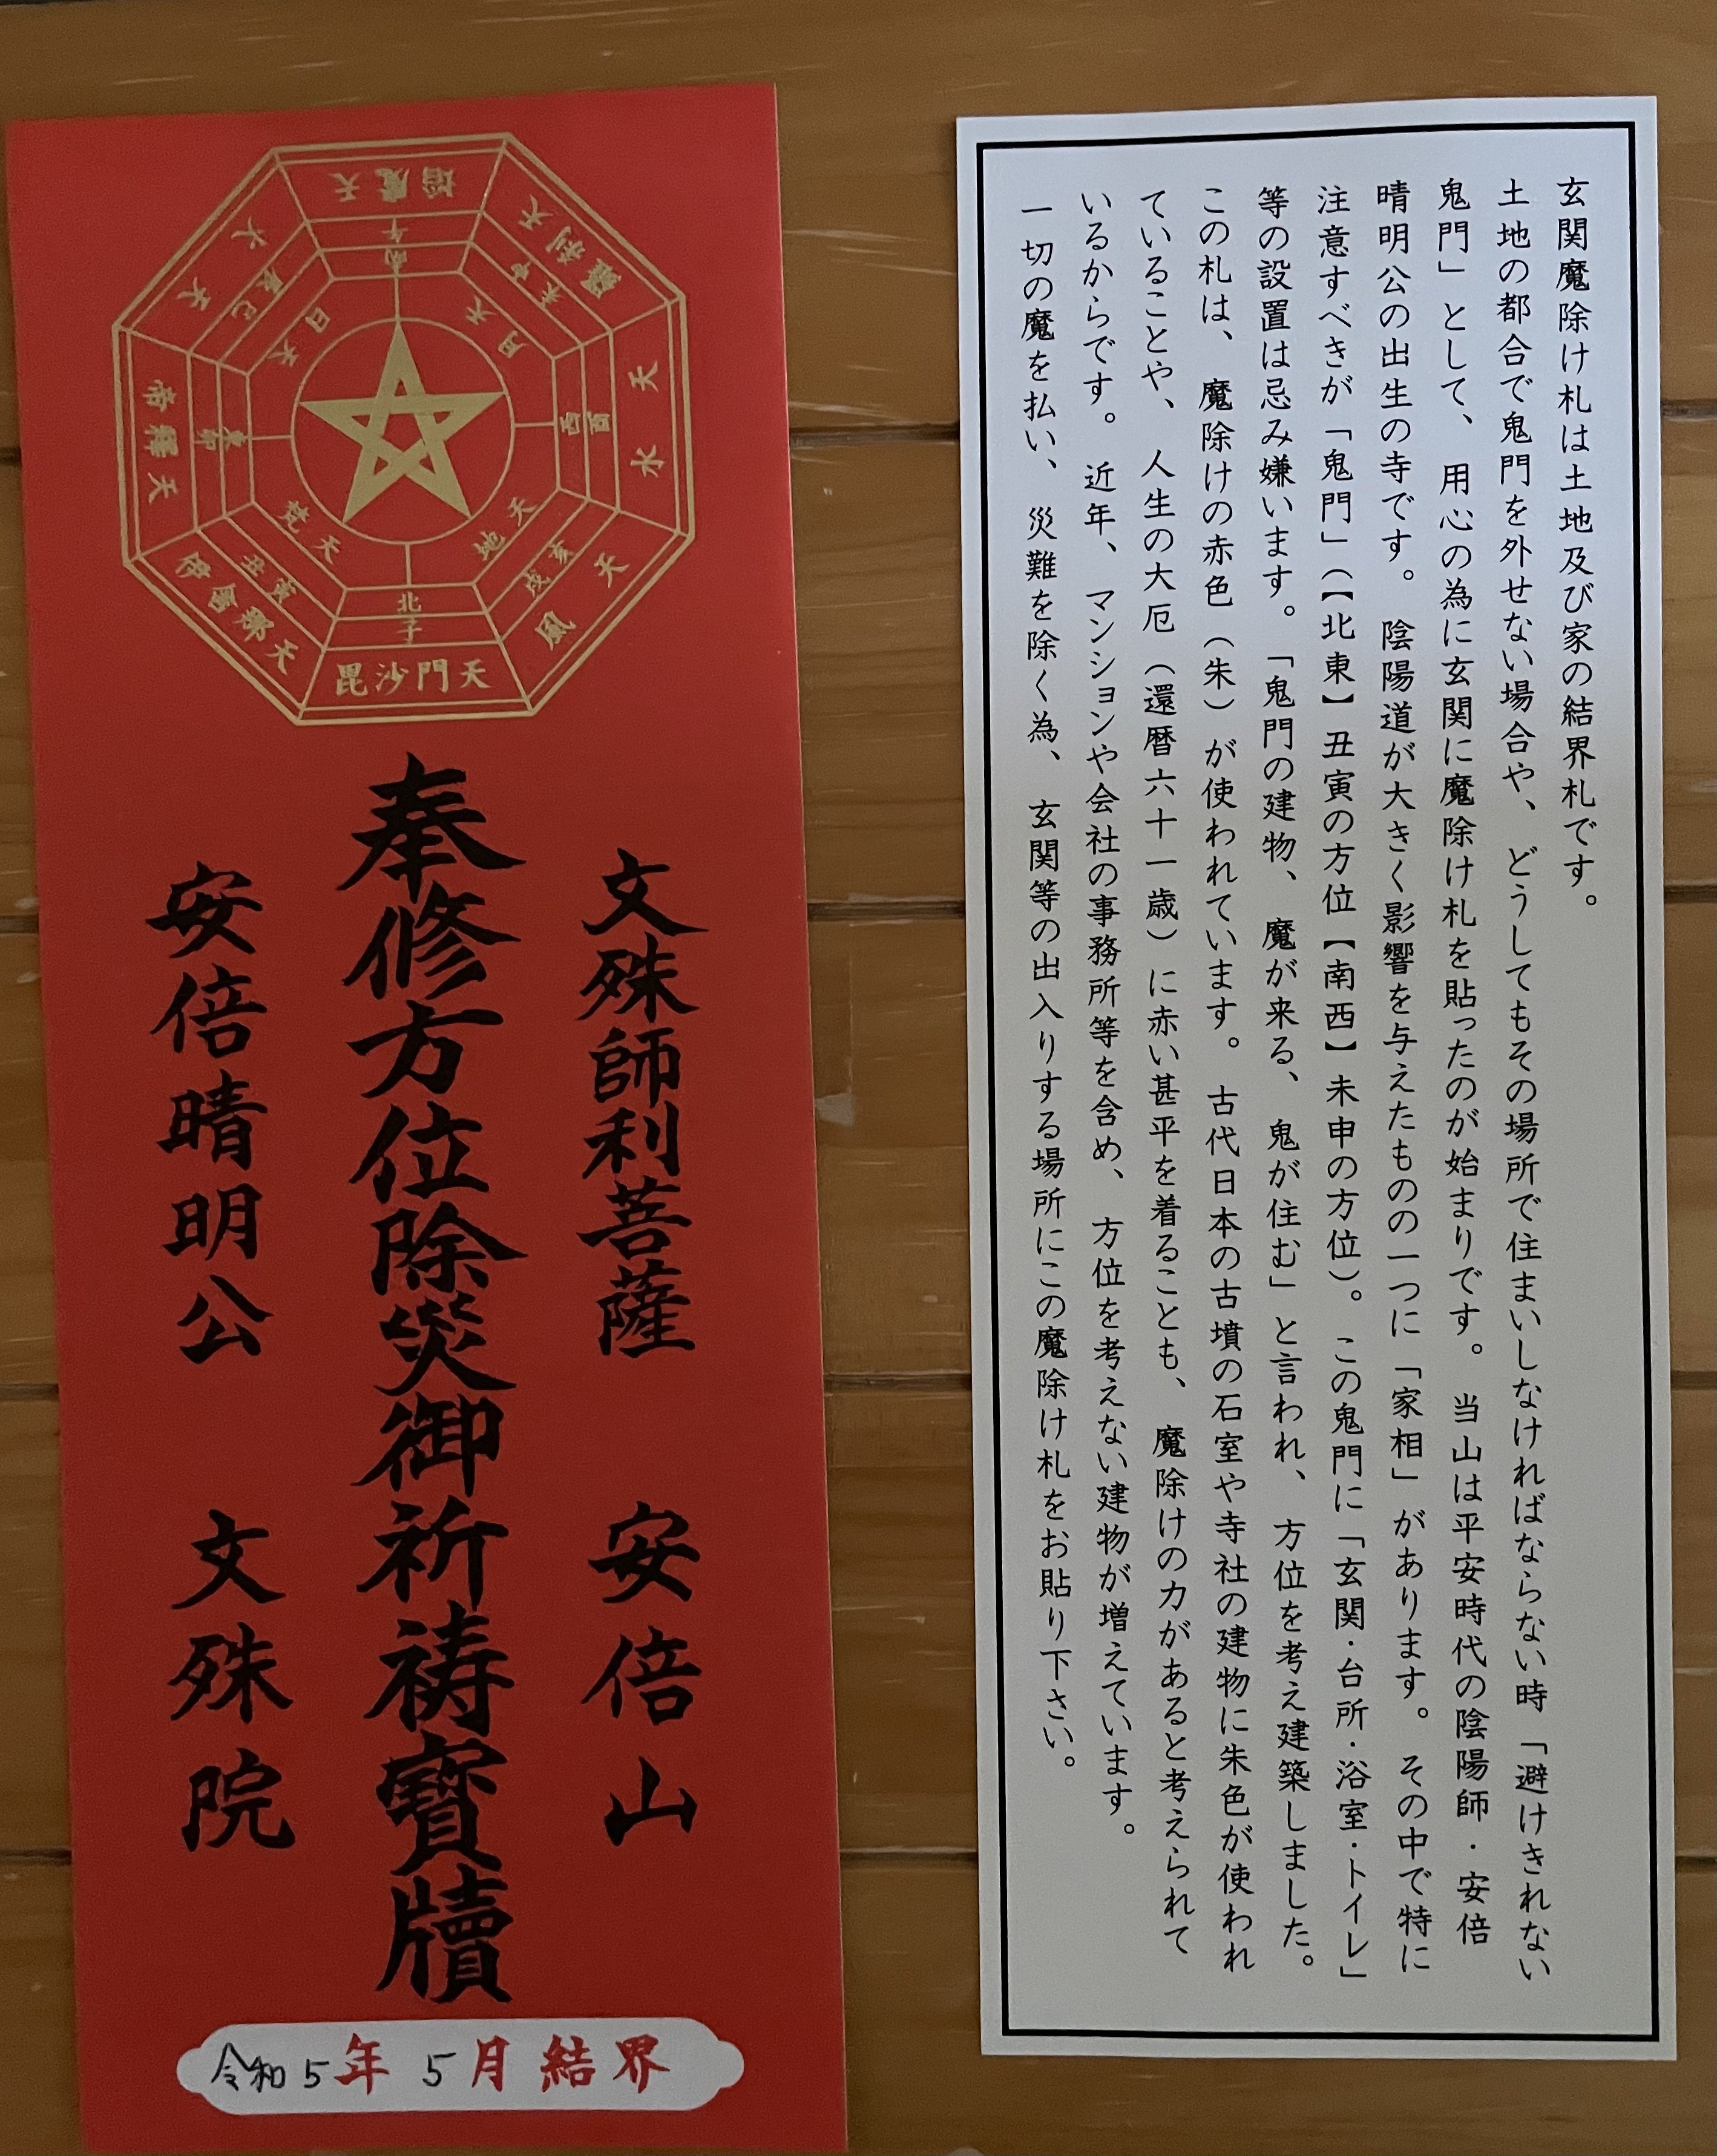 焔魔天
午
南
羅刹天
未申
月天
水天
酉
西
風天
戌亥
地天
毘沙門天
子
北
伊舎那天
丑寅
梵天
帝釋天
卯
東
火天
辰巳
日天
文殊師利菩薩 安倍山
奉修方位除災御祈祷寶牘
安倍晴明公 文殊院
令和5年5月結界
玄関魔除け札は土地及び家の結界札です。
土地の都合で鬼門を外せない場合や、どうしてもその場所で住まいしなければならない時「避けきれない
鬼門」として、用心の為に玄関に魔除け札を貼ったのが始まりです。当山は平安時代の陰陽師・安倍
晴明公の出生の寺です。陰陽道が大きく影響を与えたものの一つに「家相」があります。その中で特に
注意すべきが「鬼門」(【北東】丑寅の方位【南西】未申の方位)。この鬼門に「玄関・台所・浴室・トイレ」
等の設置は忌み嫌います。「鬼門の建物、魔が来る、鬼が住む」と言われ、方位を考え建築しました。
この札は、魔除けの赤色(朱)が使われています。古代日本の古墳の石室や寺社の建物に朱色が使われ
ていることや、人生の大厄(還暦六十一歳)に赤い甚平を着ることも、魔除けの力があると考えられて
いるからです。近年、マンションや会社の事務所等を含め、方位を考えない建物が増えています。
一切の魔を払い、災難を除く為、玄関等の出入りする場所にこの魔除け札をお貼り下さい。